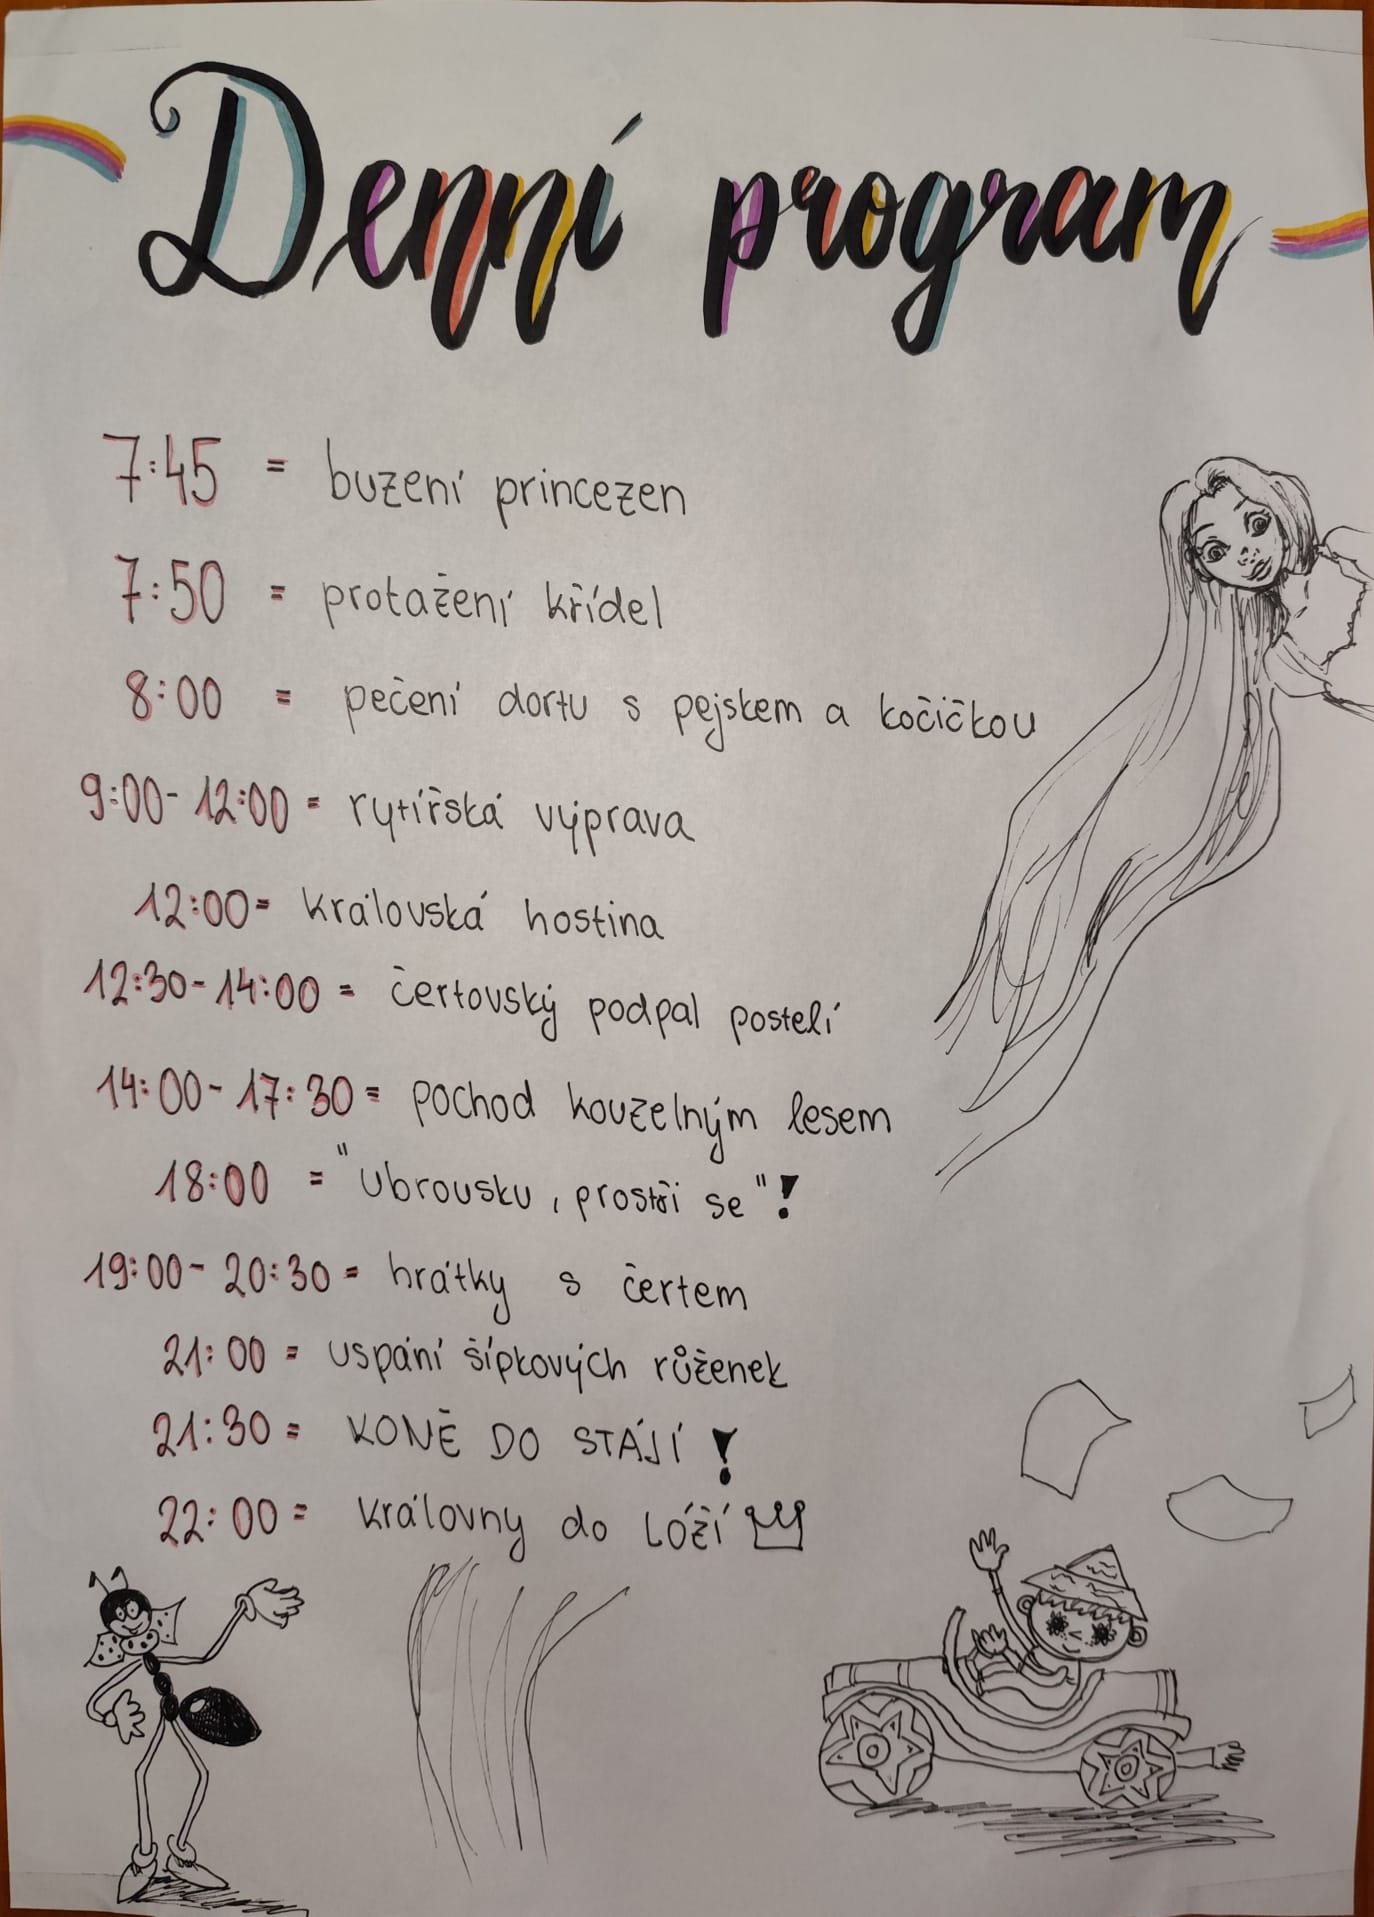 Denní program
7:45 = buzení princezen
7:50 = protažení křídel
8:00 = pečení dortu s pejskem a kočičkou
9:00-12:00 = rytířská výprava
12:00= královská hostina
12:30-14:00 = čertovský podpal postelí
14:00-17:30 = pochod kouzelným lesem
18:00 = "ubrousku, prostři se"!
19:00-20:30 = hrátky s čertem
21:00 = uspání šípkových růženek
21:30 = KONĚ DO STÁJÍ!
22:00 = královny do lóží